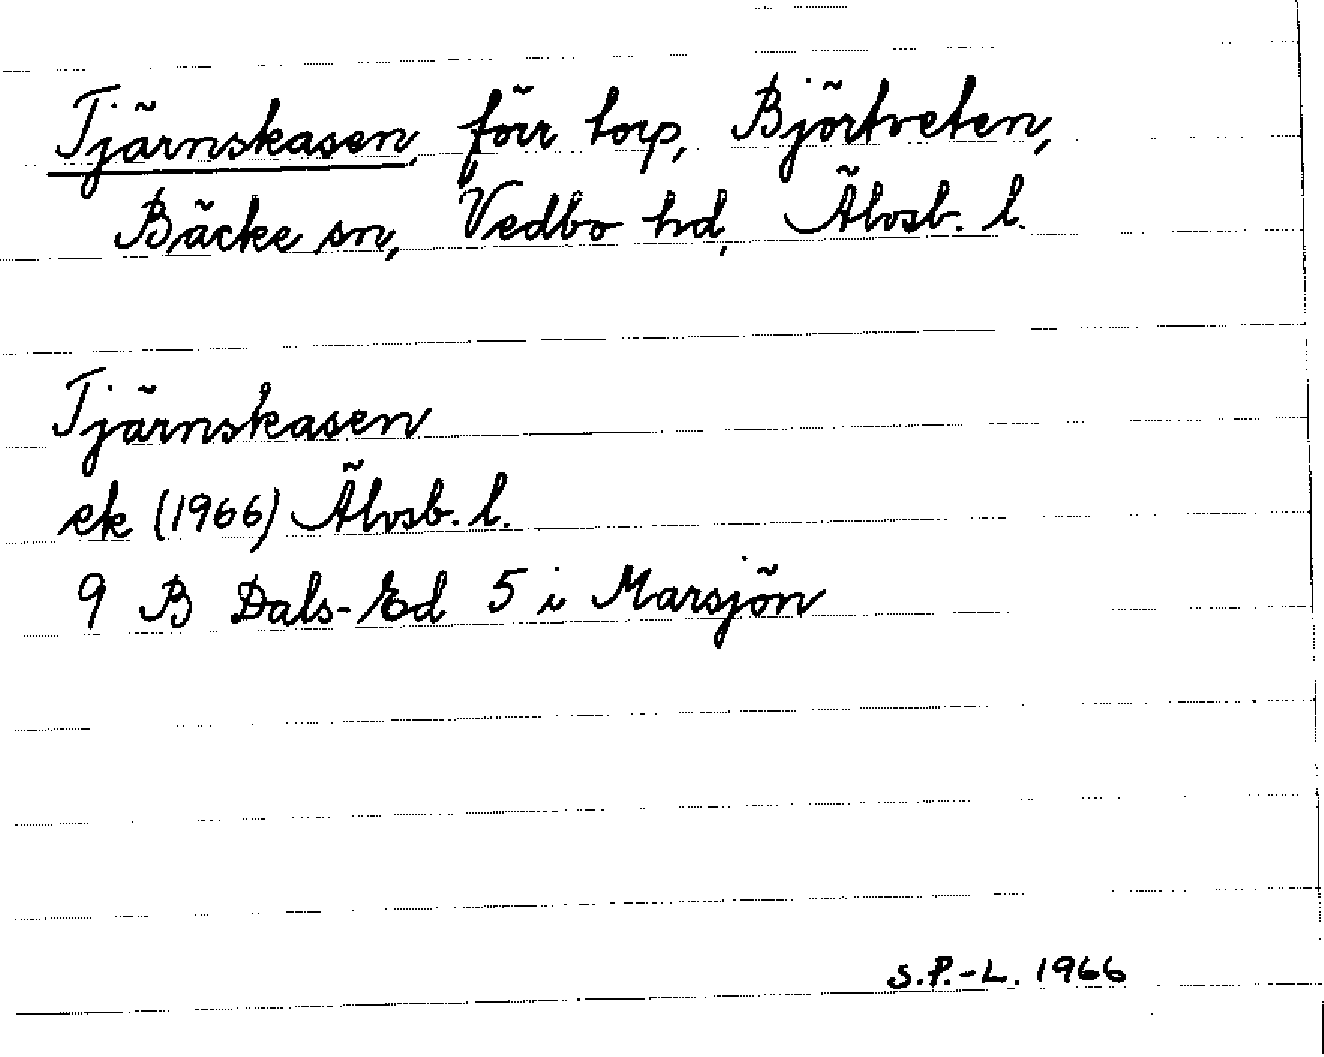 Tjärnskasen, förr torp, Björtveten,
Bäcke sn, Vedbo hd, Älvsb. l.
Tjärnskasen
ek (1966) Älvsb. l.
9 B Dals-Ed 5 i Marsjön
S.P.-L. 1966